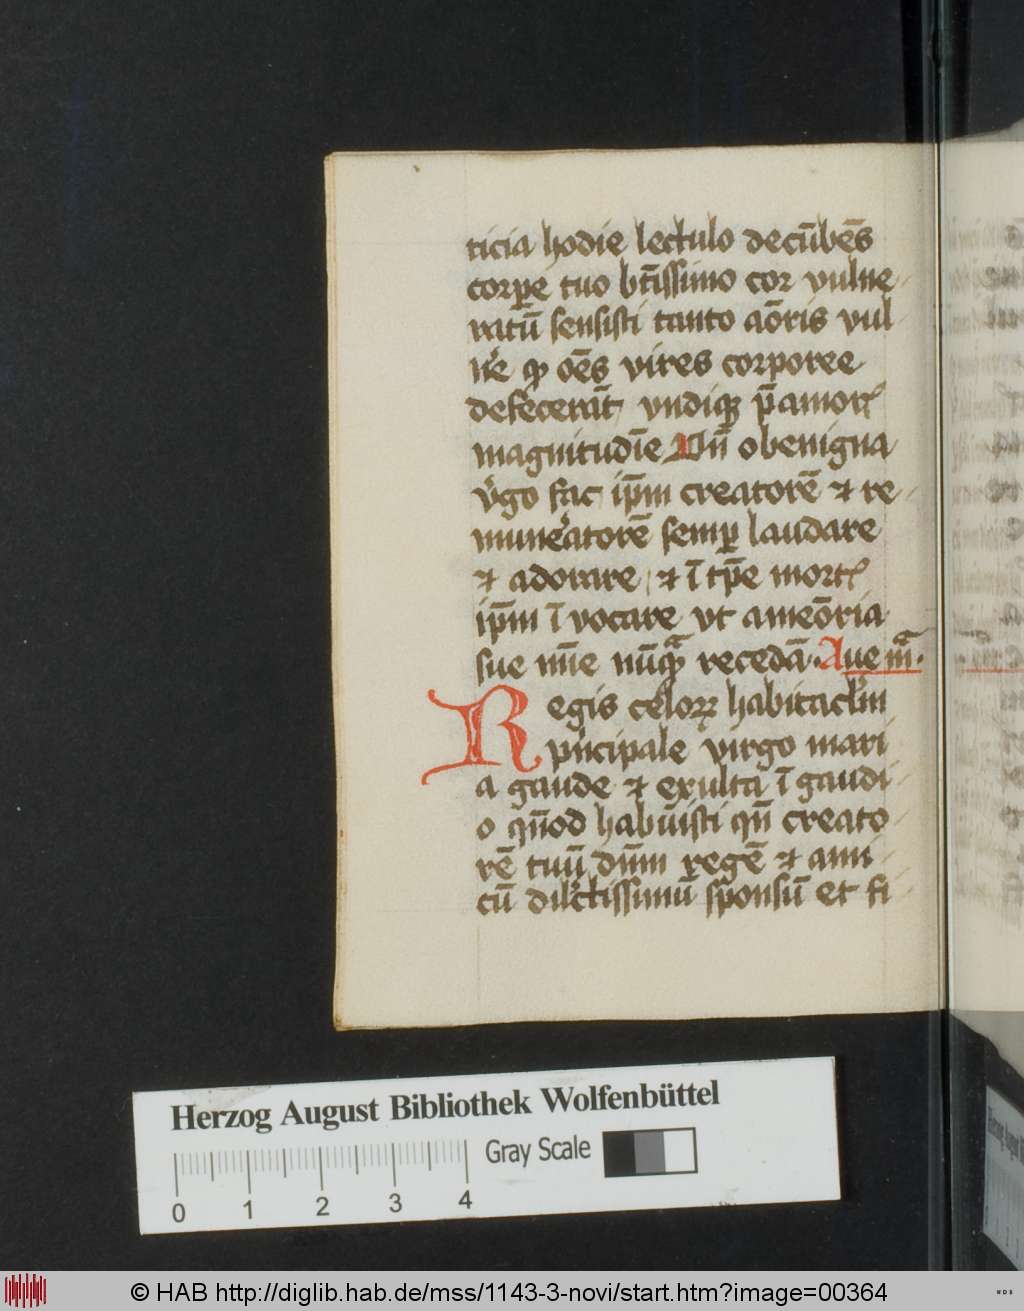 ticia hodie lectulo decūbēs
corꝑe tuo bt̄issimo cor vulne
ratū sensisti tanto aōris vul
n̾e ꝙ oēs vires corporee
defecerāt vndiqꝫ p̄ amorꝭ
magnitudīe Vn̄ o benigna
v̾go fac ip̄m creatorē et re
mun̾eatorē semꝑ laudare
et adorare et ī tp̄e mortꝭ
ip̄m ī vocare vt a meōria
sue mn̄e nūqᷓ recedā. Aue mᷓ.
Regis celoꝝ habitacl̾m
pͥncipale virgo mari
a gaude et exulta ī gaudi
o qn̄od habuisti qn̄ creato
rē tuū dn̄m regē et ami
cū dil̾ctissimū sponsū et fi
Herzog August Bibliothek Wolfenbüttel
Gray Scale
0 1 2 3 4
© HAB http://diglib.hab.de/mss/1143-3-novi/start.htm?image=00364